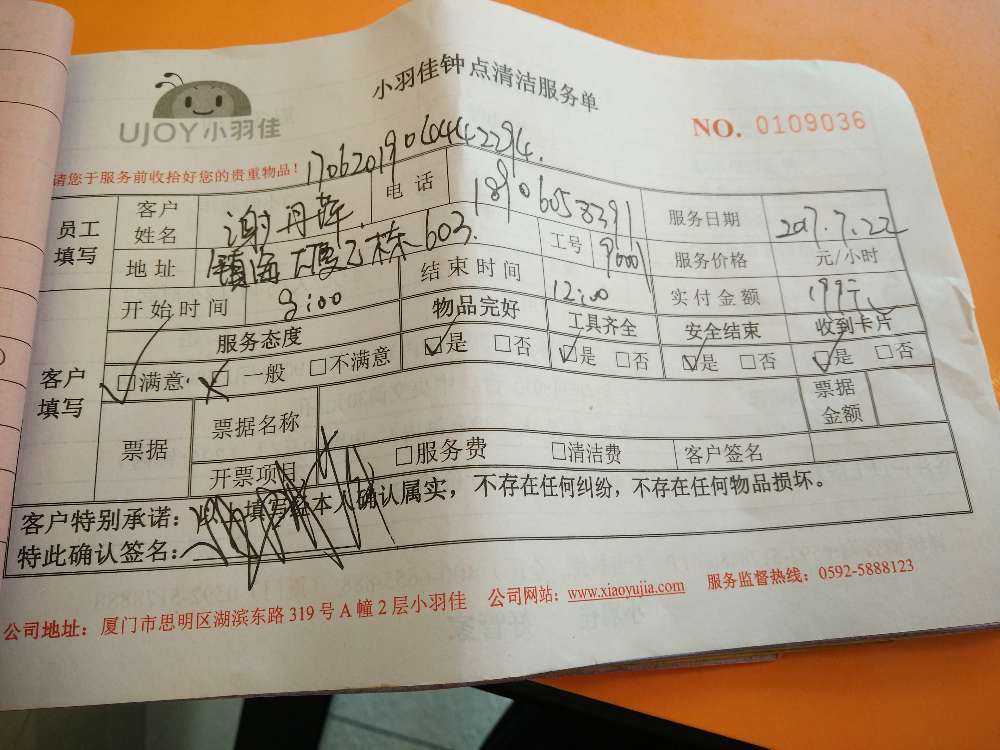 小羽佳钟点清洁服务单
UJOY小羽佳
NO. 0109036
请您于服务前收拾好您的贵重物品!
17062019064442294.
员工填写 客户姓名 谢丹萍 电话 18906058391 服务日期 2017.7.22
地址 镇海大厦乙栋603. 工号 9001 服务价格 元/小时
客户填写 开始时间 9:00 结束时间 12:00 实付金额 199元
服务态度 物品完好 工具齐全 安全结束 收到卡片
□满意 □一般 □不满意 □是 □否 □是 □否 □是 □否 □是 □否
票据 票据名称 票据金额
开票项目 □服务费 □清洁费 客户签名
客户特别承诺:以上填写经本人确认属实,不存在任何纠纷,不存在任何物品损坏。
特此确认签名:
公司地址:厦门市思明区湖滨东路319号A幢2层小羽佳 公司网站:www.xiaoyujia.com 服务监督热线:0592-5888123